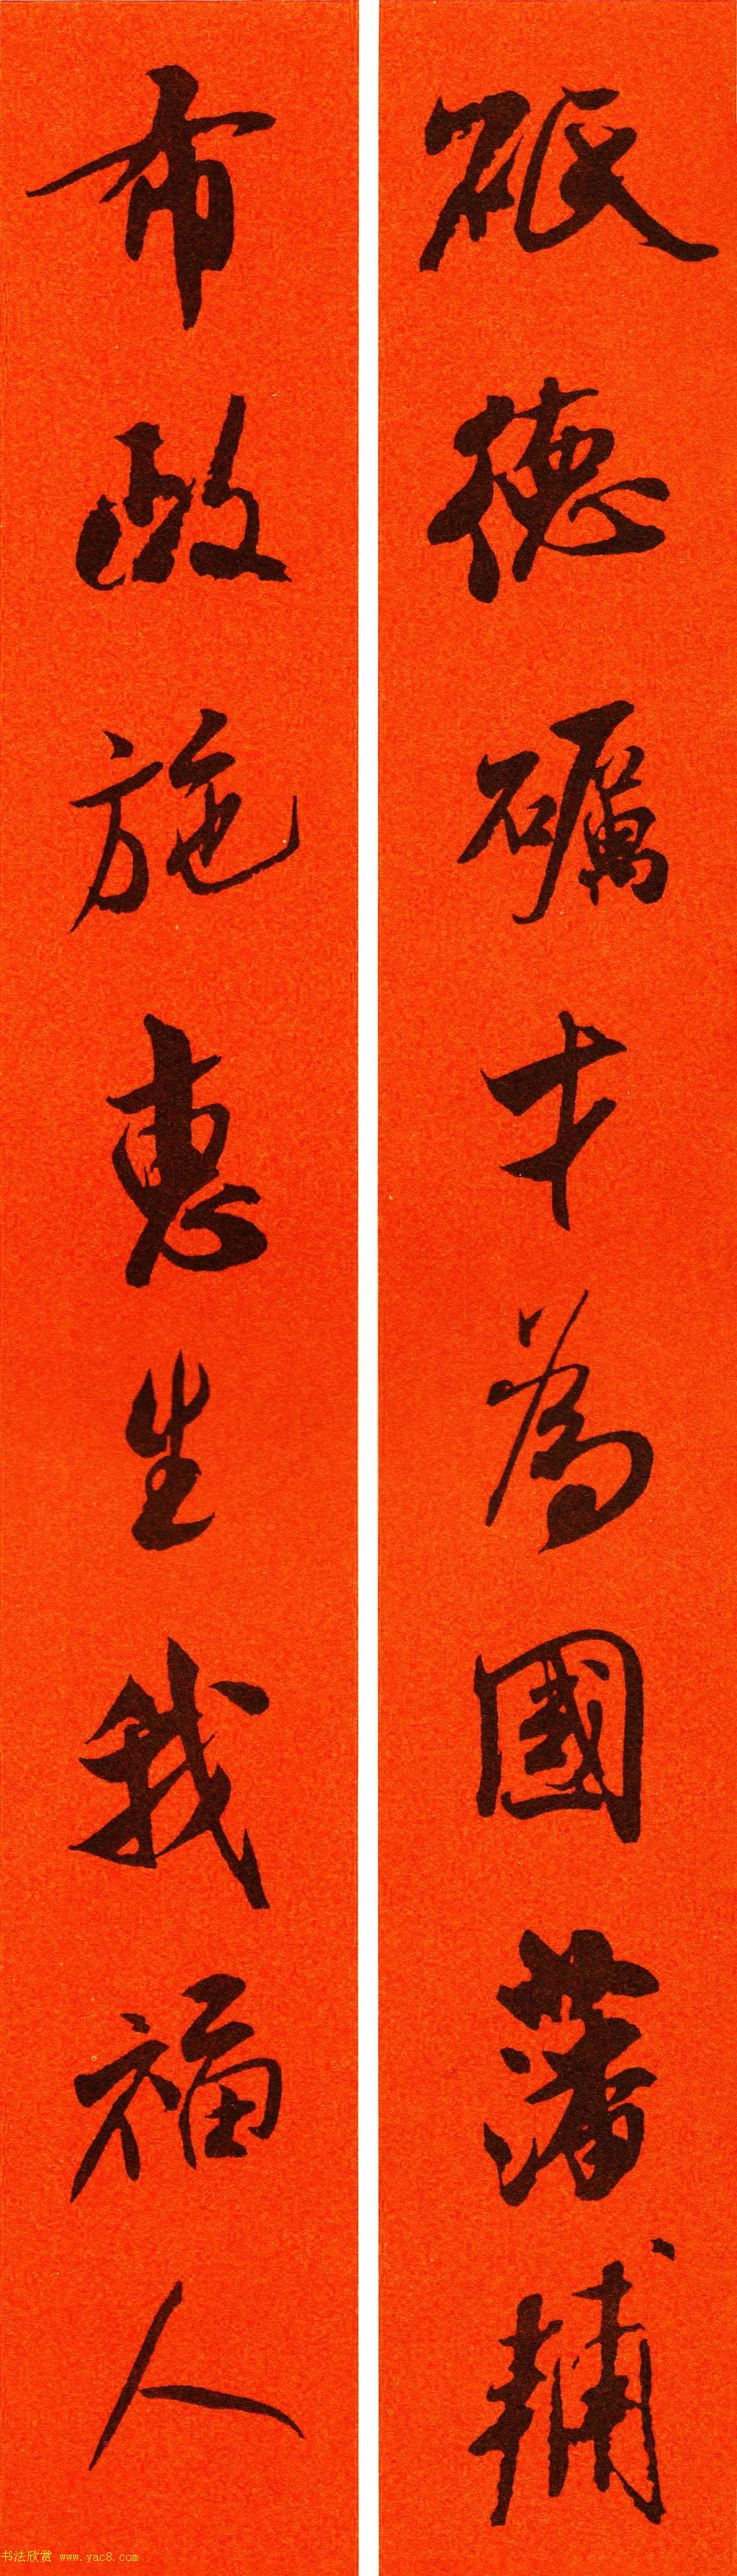 砥德礪才為國藩輔
布政施惠生我福人
书法欣赏 www.yac8.com